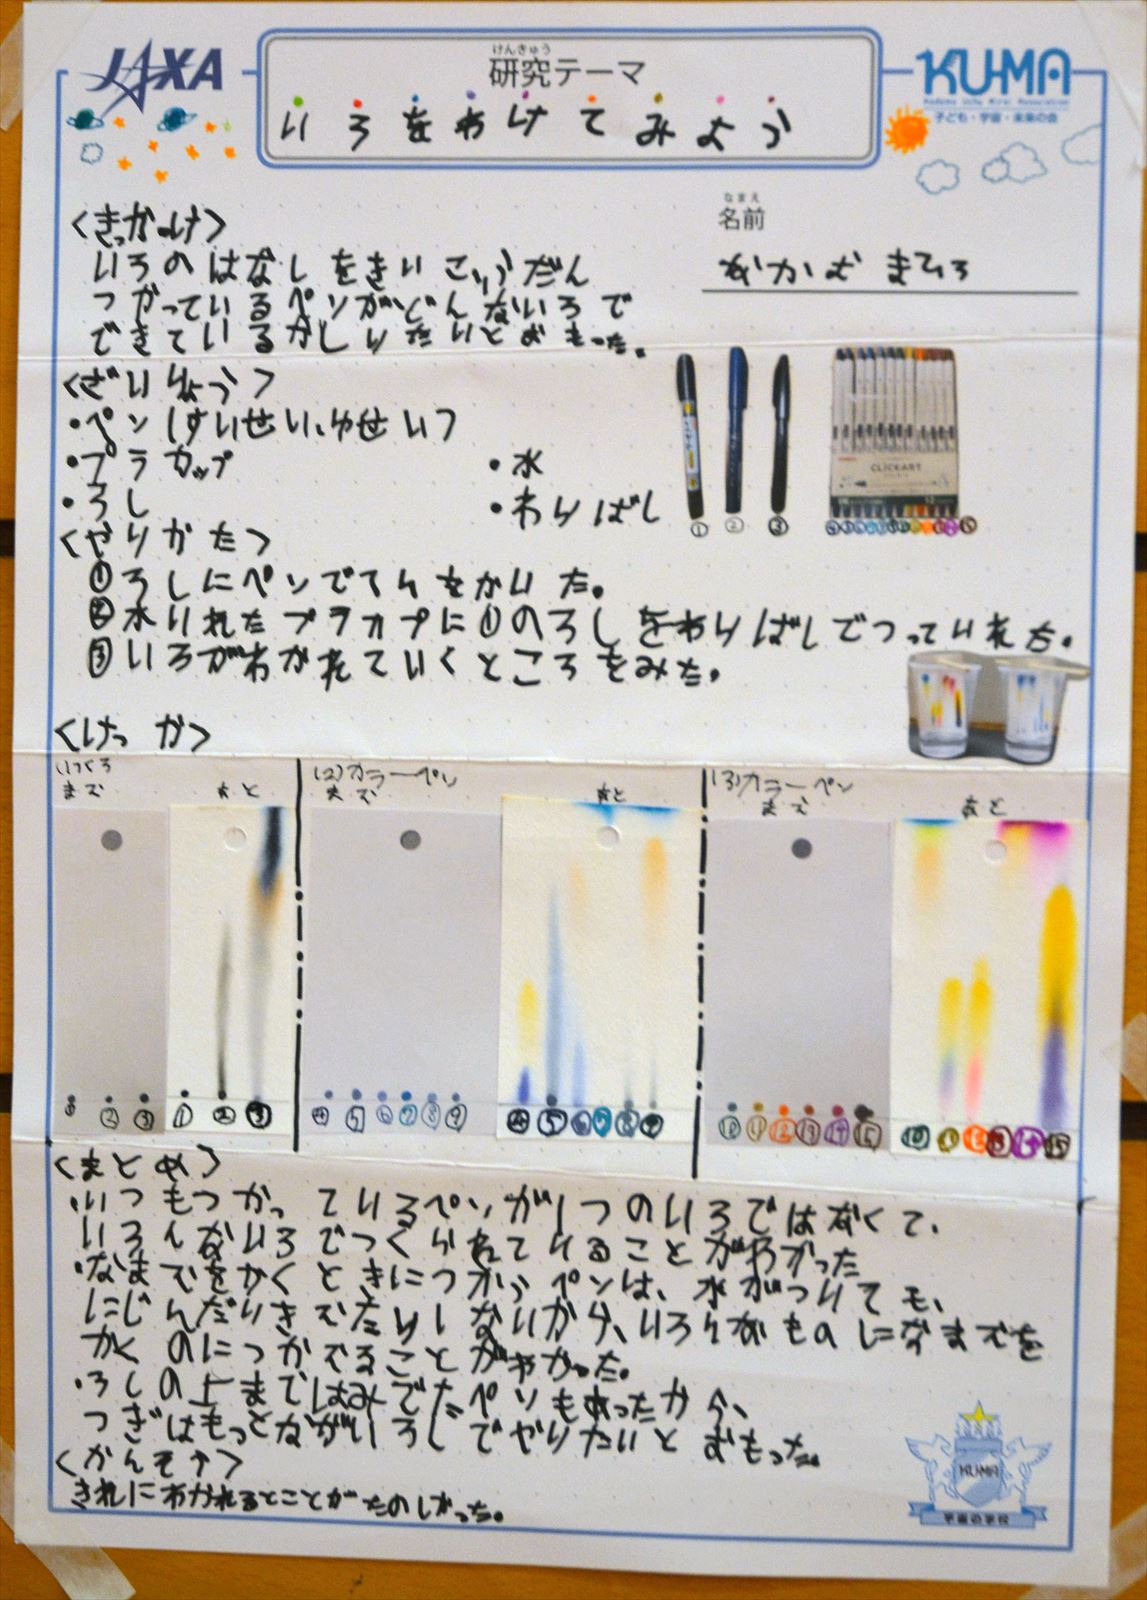 JAXA
けんきゅう
研究テーマ
KU-MA
子ども・宇宙・未来の会
いろをわけてみよう
なまえ
名前
<きっかけ>
いろのはなしをきい
つかっているペンがどんないろで
できているかしりたいとおもった。
<ざいりょう>
・ペン(すいせい、ゆせい)
・プラカップ
・水
・ろし
・わりばし
CLiCKART
① ② ③
<やりかた>
①ろしにペンでてんをかいた。
②水いれたプラカプに①のろしをわりばしでつっていれた。
③いろがわかれていくところをみた。
<けっか>
(1)くろ
まえ
あと
(2)カラーペン
まえ
あと
(3)カラーペン
まえ
あと
② ③
① ② ③
④ ⑤ ⑥ ⑦ ⑧ ⑨
④ ⑤ ⑥ ⑦ ⑧ ⑨
⑩ ⑪ ⑫ ⑬ ⑭ ⑮
⑩ ⑪ ⑫ ⑬ ⑭ ⑮
<まとめ>
・いつもつかっているペンが1つのいろではなくて、
いろんないろでつくられていることがわかった
・なまえをかくときにつかうペンは、水がついても、
にじんだりきえたりしないから、いろんなものになまえを
かくのにつかえることがわかった。
・ろしの上まではみでたペンもあったから、
つぎはもっとながいろしでやりたいとおもった。
<かんそう>
きれいにわかれるとことがたのしかった。
KU-MA
宇宙の学校